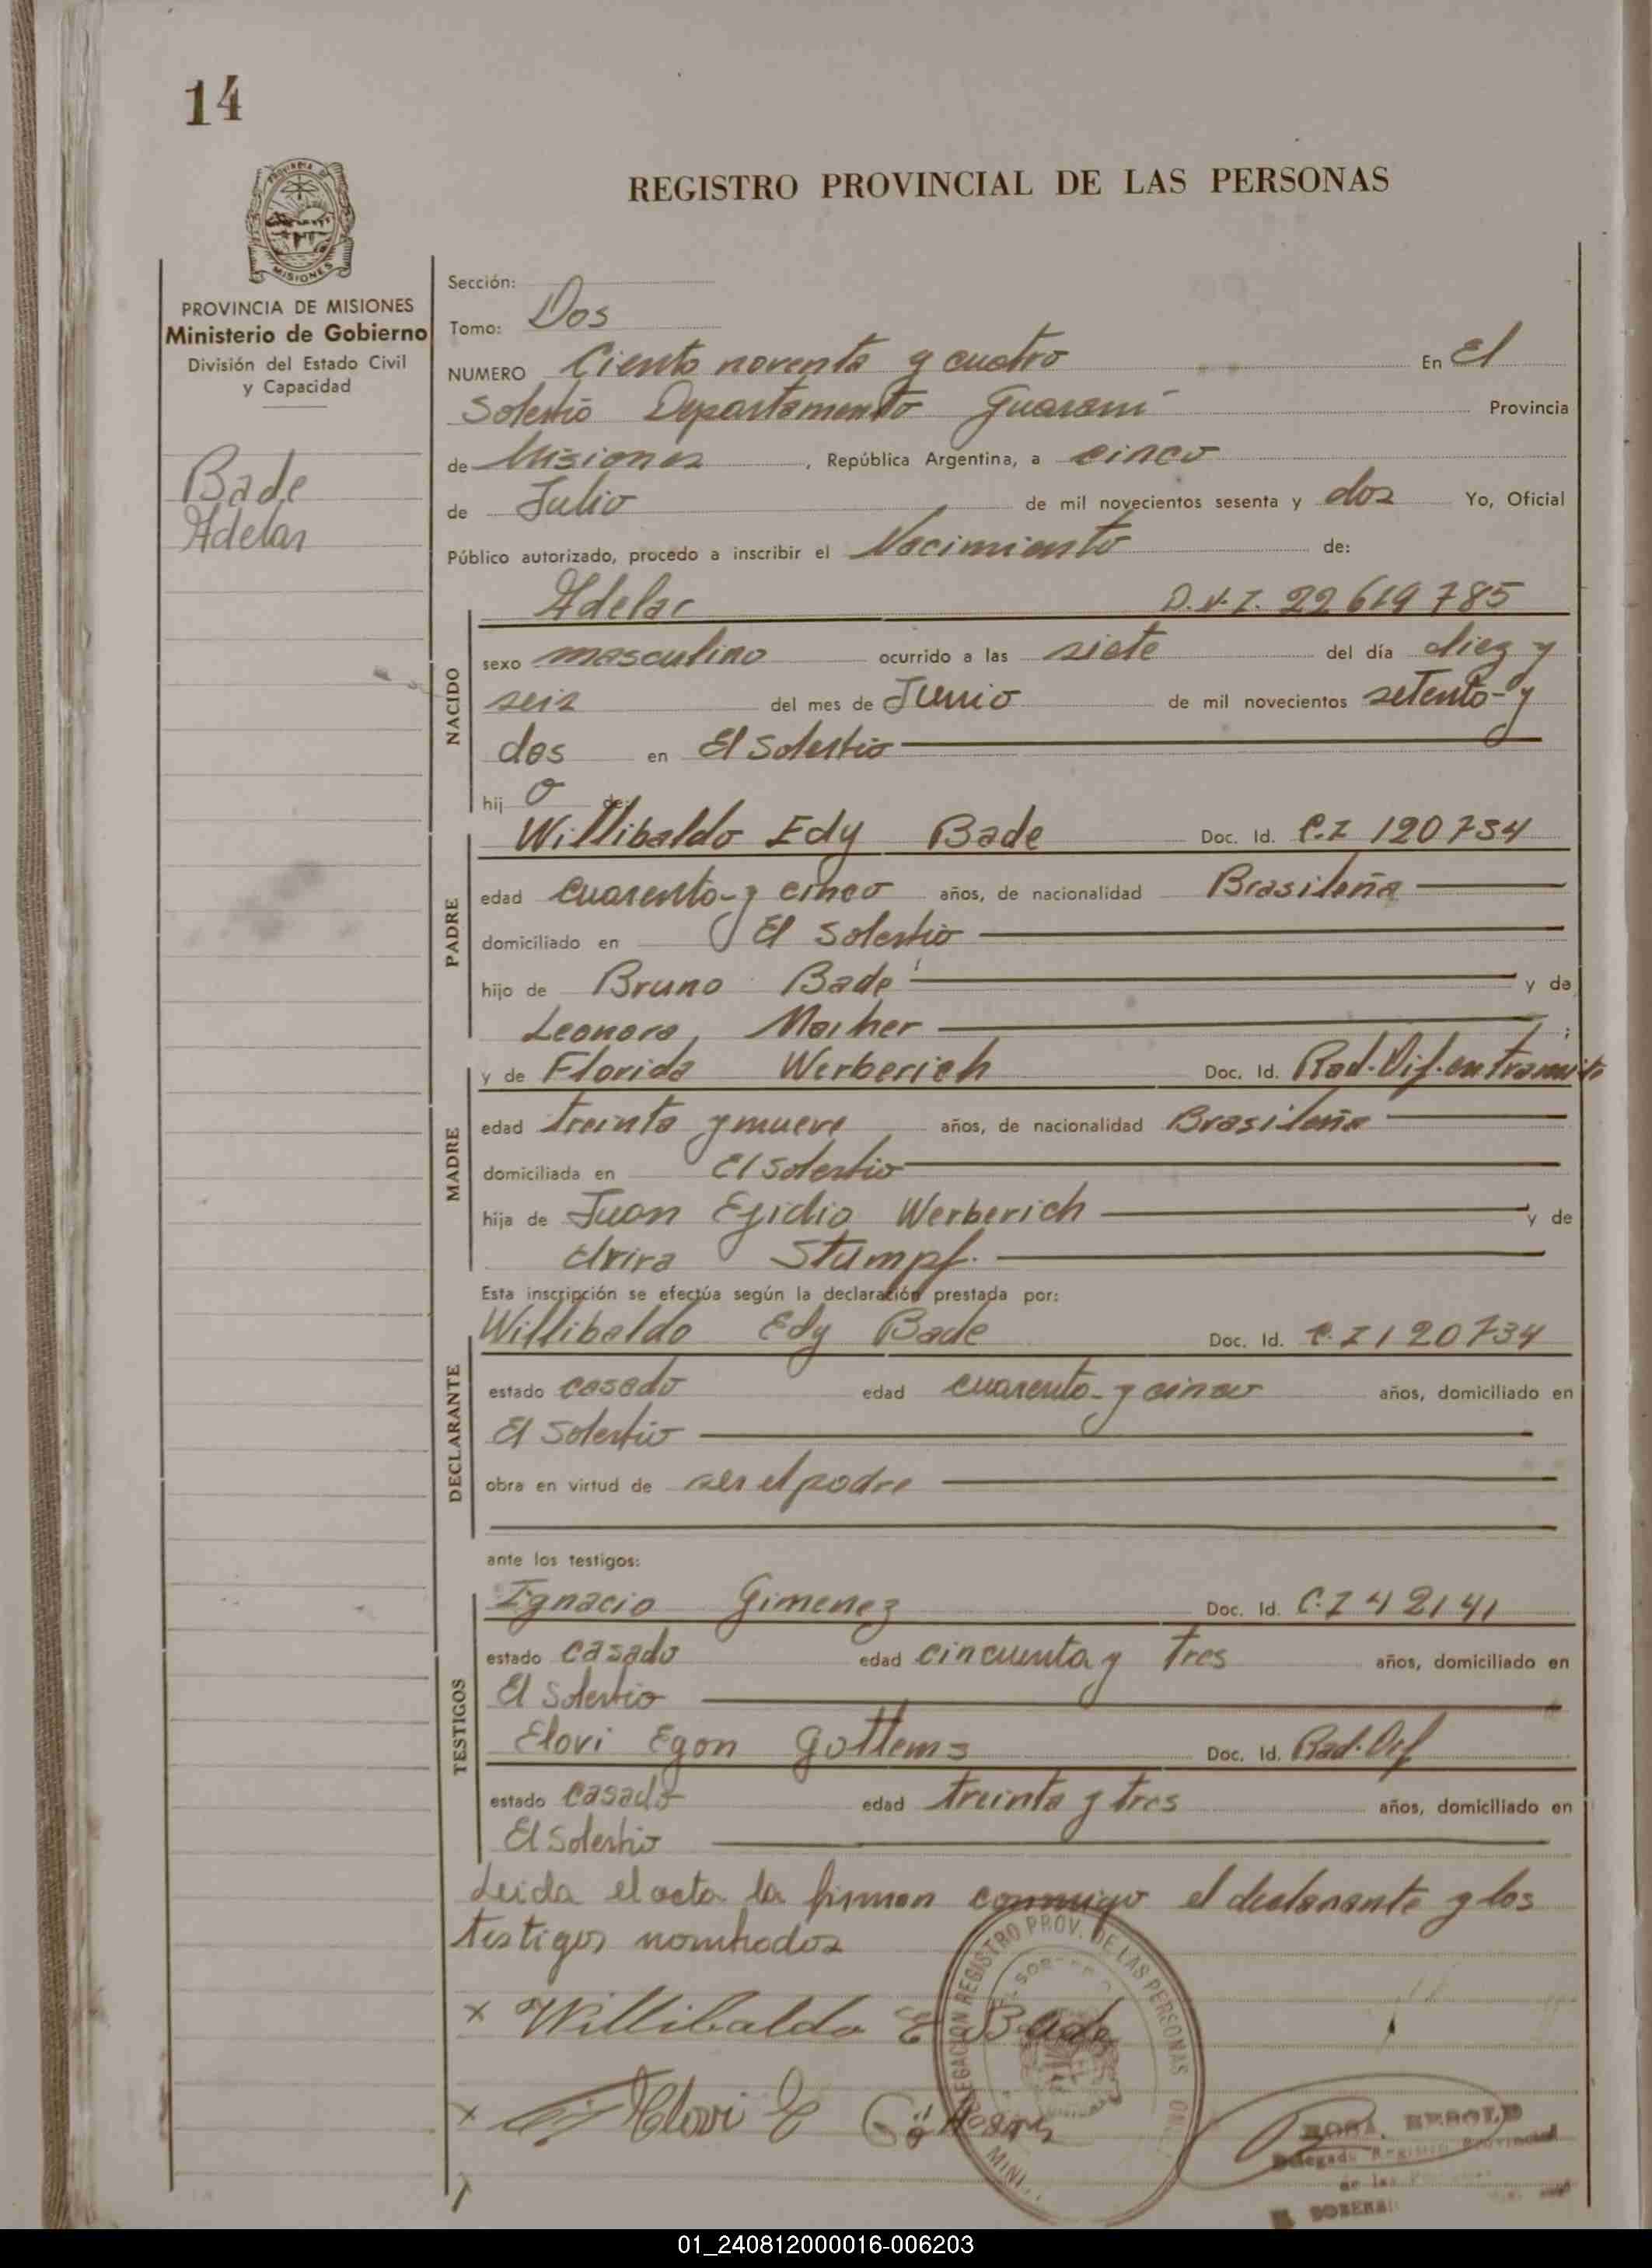 14
PROVINCIA DE
MISIONES
REGISTRO PROVINCIAL DE LAS PERSONAS
PROVINCIA DE MISIONES
Ministerio de Gobierno
División del Estado Civil
y Capacidad
Bade
Adelar
Sección:
Tomo: Dos
NUMERO Ciento noventa y cuatro En El
Solestio Departamento Guarani Provincia
de Misiones, República Argentina, a cinco
de Julio de mil novecientos sesenta y dos Yo, Oficial
Público autorizado, procedo a inscribir el Nacimiento de:
NACIDO
Adelar D.N.I. 22 619 785
sexo masculino ocurrido a las siete del día diez y
seis del mes de Junio de mil novecientos setenta y
dos en El Solestio
hij o de:
PADRE
Willibaldo Edy Bade Doc. Id. C.I 120734
edad cuarenta y cinco años, de nacionalidad Brasileña
domiciliado en El Solestio
hijo de Bruno Bade y de
Leonora ;
MADRE
y de Florida Werberich Doc. Id. Rad. en tramite
edad treinta y nueve años, de nacionalidad Brasileña
domiciliada en El Solestio
hija de Juan Egidio Werberich y de
Elvira Stumpf.
Esta inscripción se efectúa según la declaración prestada por:
DECLARANTE
Willibaldo Edy Bade Doc. Id. C.I 120734
estado casado edad cuarenta y cinco años, domiciliado en
El Solestio
obra en virtud de ser el padre
ante los testigos:
TESTIGOS
Ignacio Gimenez Doc. Id. C.I 42141
estado casado edad cincuenta y tres años, domiciliado en
El Solestio
Elovi Egon Gottems Doc. Id. Rad. Def
estado casado edad treinta y tres años, domiciliado en
El Solestio
Leida el acta la firman conmigo el declarante y los
testigos nombrados
x Willibaldo E Bade
x Elovi E
DELEGACION REGISTRO PROV. DE LAS PERSONAS
ROSA
Delegado Registro Provincial
de las
01_240812000016-006203